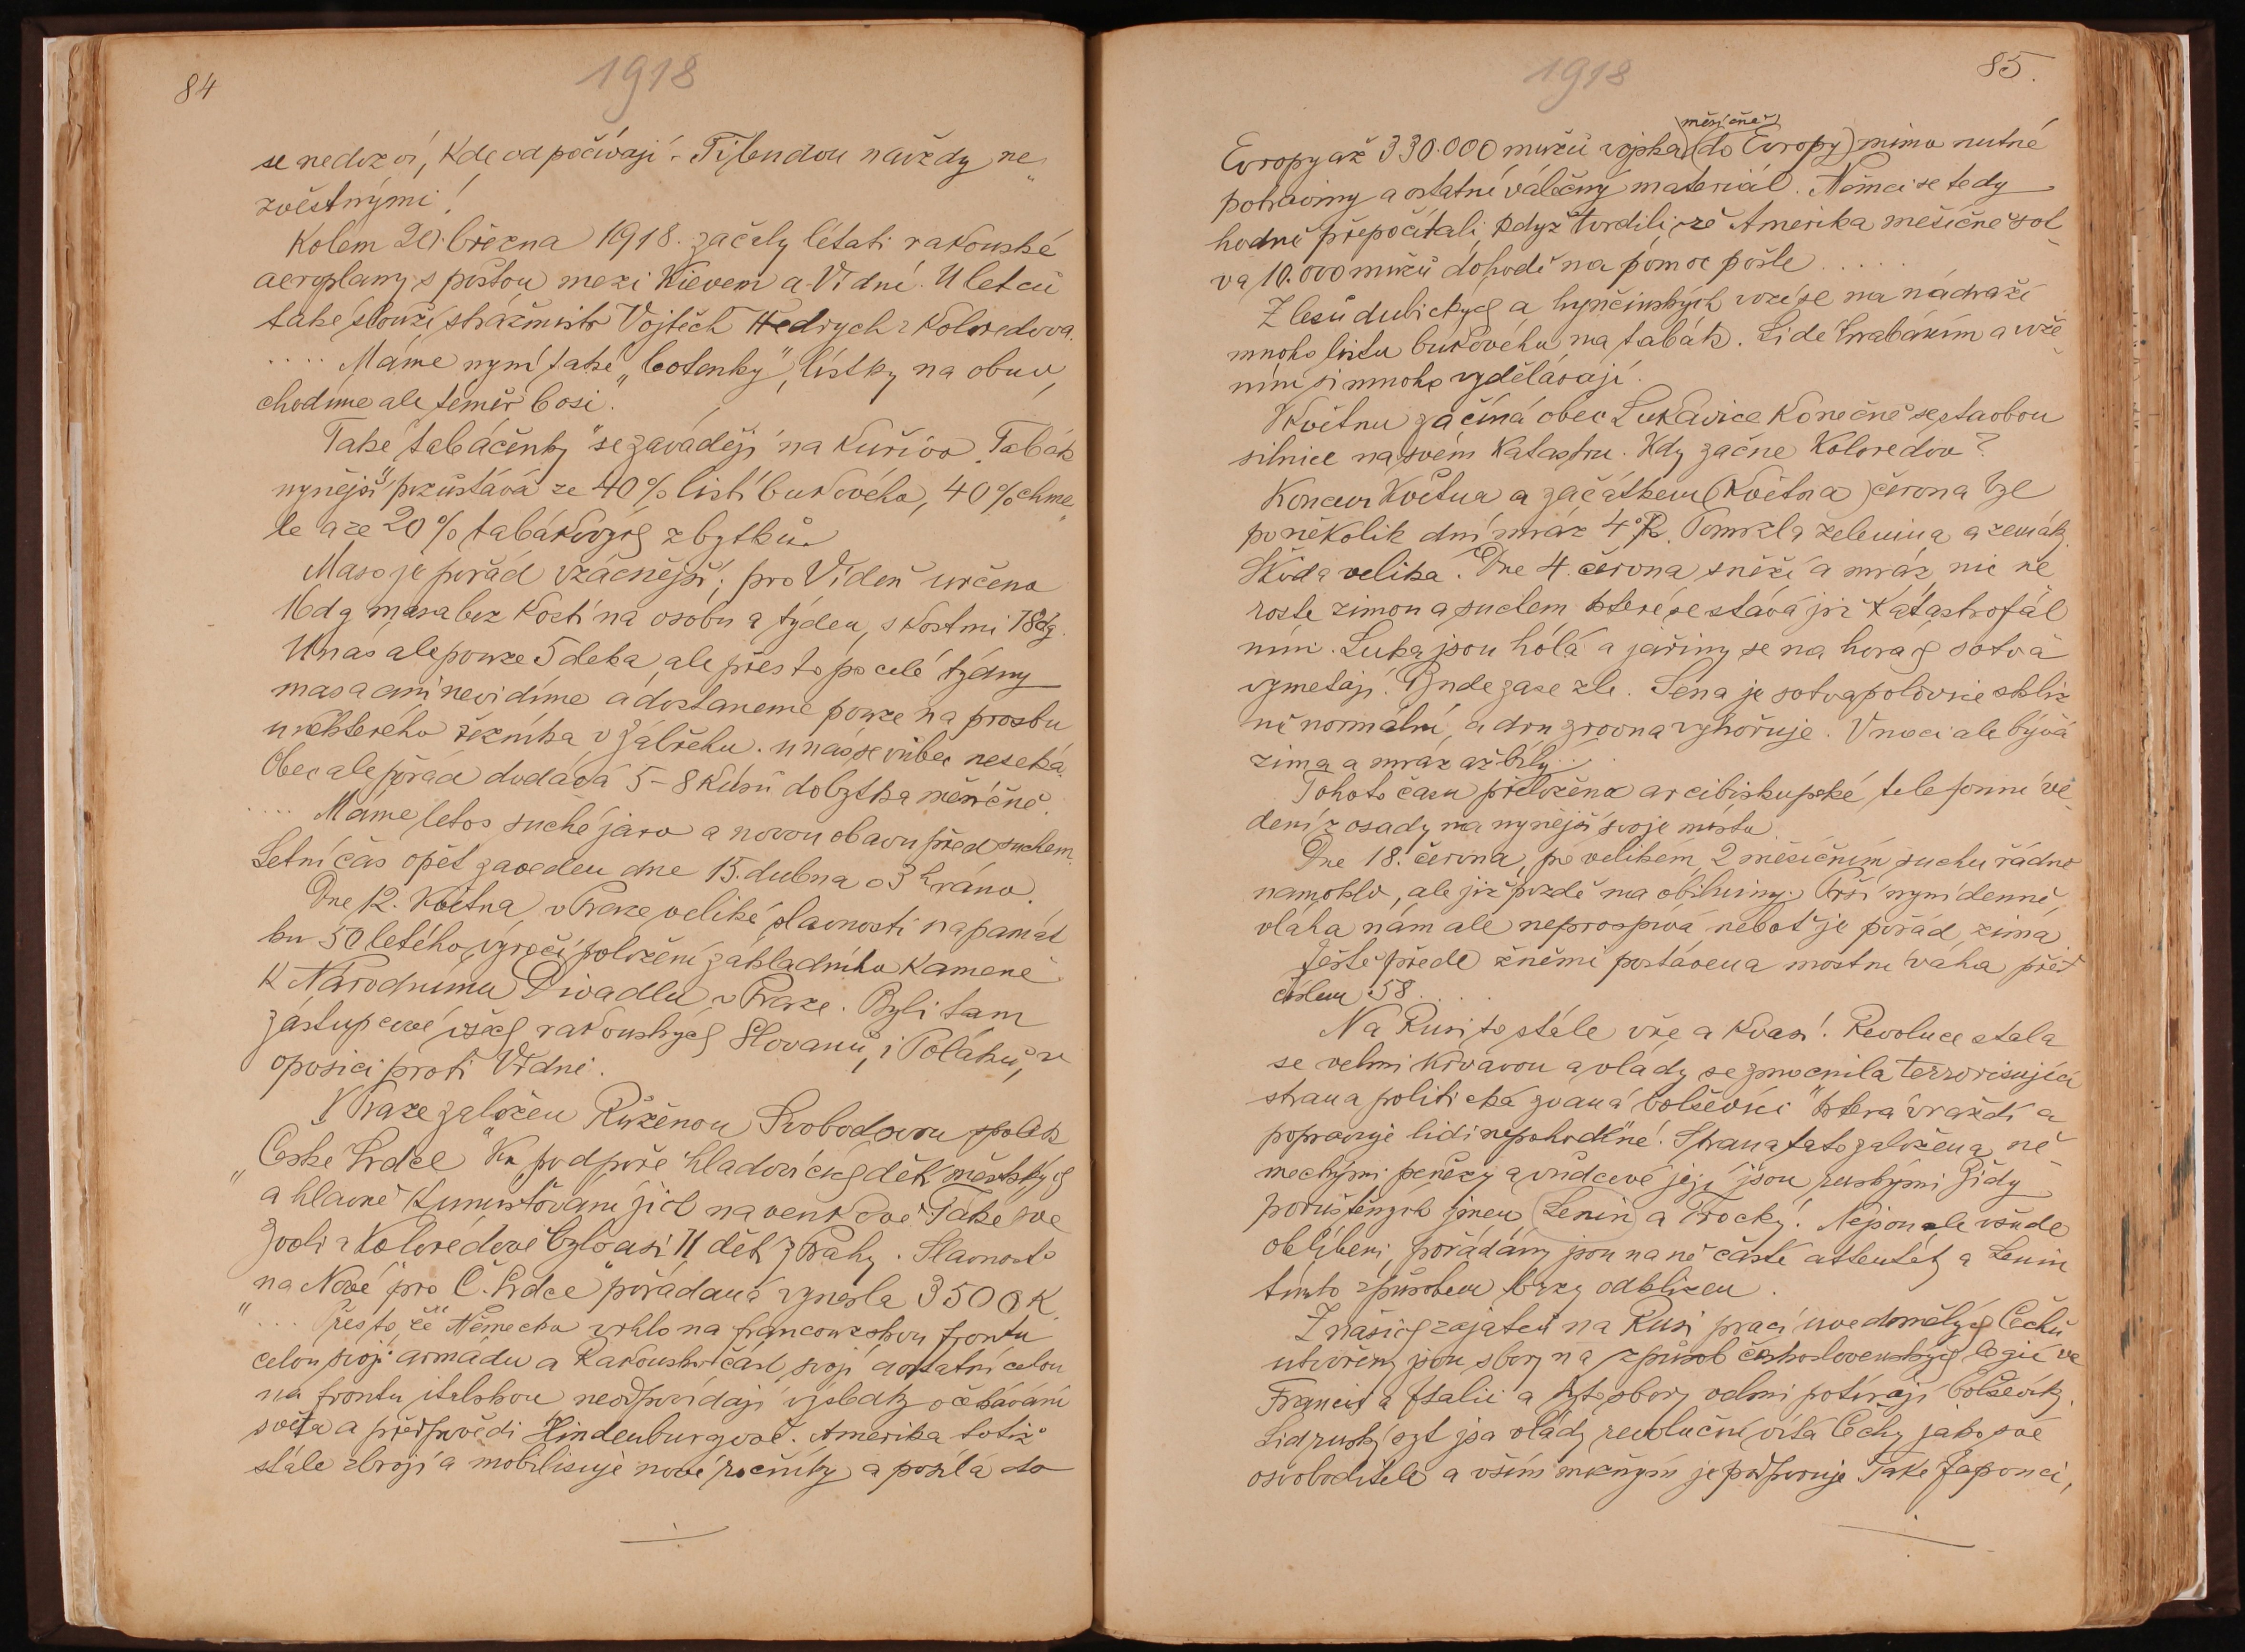 84
1918
se nedozví, kde odpočívají. Ti budou navždy ne„
zvěstnými!
Kolem 20. března 1918. začely létati rakouské
aeroplany s poštou mezi Kievem a Vídní. U letců
také slouží strážmistr Vojtěch Hedrych z Koloredova.
.... Máme nyní také „botenky", lístky na obuv,
chodíme ale téměř bosi.
Také „tabáčenky" se zavádějí na kuřivo. Tabák
nynější pozůstává ze 40% listí bukového, 40% chme„
le a ze 20% tabákových zbytků.
Maso je pořád vzácnější; pro Vídeň určeno
16 dg masa bez kostí na osobu a týden, s kostmi 18 dg.
U nás ale pouze 5 deka, ale přes to po celé týdny
masa ani nevidíme a dostaneme pouze na prosbu
u některého řezníka v Zábřehu. u nás se vůbec neseká.
Obec ale pořad dodává 5-8 kusů dobytka měsíčně.
.... Máme letos suché jaro a novou obavu před suchem.
Letní čas opět zaveden dne 15. dubna o 3 h ráno.
Dne 12. května v Praze veliké slavnosti na památ
ku 50 letého výročí položení základního kamene
k Národnímu Divadlu v Praze. Byli tam
zástupcové všech rakouských Slovanů, i Poláků, v
oposici proti Vídni.
V Praze založen Růženou Svobodovou spolek
„České Srdce" ku podpoře hladovících dětí městských
a hlavně k umístování jich na venkově. Také ve
Zvoli a Koloredově bylo asi 11 dětí z Prahy. Slavnost
na Nové „pro Č. Srdce" pořádaná vynesla 3500 K.
.... Přes to, že Německo vrhlo na francouzskou frontu
celou svoji armádu a Rakousko část svojí a ostatní celou
na frontu italskou neodpovídají výsledky očekávání
světa a předpovědi Hindenburgově. Amerika totiž
stále zbrojí a mobilisuje nové ročníky a posílá do
1918
85.
měsíčně
Evropy až 330.000 mužů vojska (do Evropy) mimo nutné
potraviny a ostatní válečný materiál. Němci se tedy
hodně přepočítali, když tvrdili, že Amerika měsíčně sot
va 10.000 mužů dohodě na pomoc pošle .....
Z lesů dubických a hynčinských vozí se na nádraží
mnoho listu bukového na tabák. Lidé hrabáním a voze
ním si mnoho vydělávají.
V květnu začíná obec Lukavice konečně se stavbou
silnice na svém katastru. Kdy začne Koloredov?
Koncem května a začátkem (května) června byl
po několik dní mráz 4° R. Pomrzla zelenina a zemáky.
Škoda veliká. Dne 4. června sněží a mráz, nic ne
roste zimou a suchem, které se stává již katastrofál
ním. Luka jsou holá a jařiny se na horách sotva
vymetají. Bude zase zle. Sena je sotva polovic skliz
ně normální, a drn zrovna vyhořuje. V noci ale bývá
zima a mráz až bílý...
Tohoto času přeloženo arcibiskupské telefonní ve
dení z osady na nynější svoje místo.
Dne 18. června, po velikém, 2 měsíčním suchu řádně
namoklo, ale již pozdě na obiloviny. Prší nyní denně,
vláha nám ale neprospívá, neboť je pořád zima.
Ještě přede žněmi postavena mostní váha před
číslem 58 ....
Na Rusi to stále vře a kvasí. Revoluce stala
se velmi krvavou a vlády se zmocnila terrorisující
strana politická zvaná „bolševici" která vraždí a
popravuje lidi nepohodlné. Strana tato založena ně
meckými penězy a vůdcové její jsou ruskými Židy
poruštěných jmen Lenin a Trocký. Nejsou ale všude
oblíbeni, pořádány jsou na ně časté attentáty a Lenin
tímto způsobem brzy odklizen.
Z našich zajatců na Rusi prací uvědomělých Čechů
utvořeny jsou sbory na způsob československých legií ve
Francii a Italii a tyto sbory velmi potírají bolševiky.
Lid ruský syt jsa vlády revoluční vítá Čechy jako své
osvoboditele a vším možným je podporuje. Také Japonci,